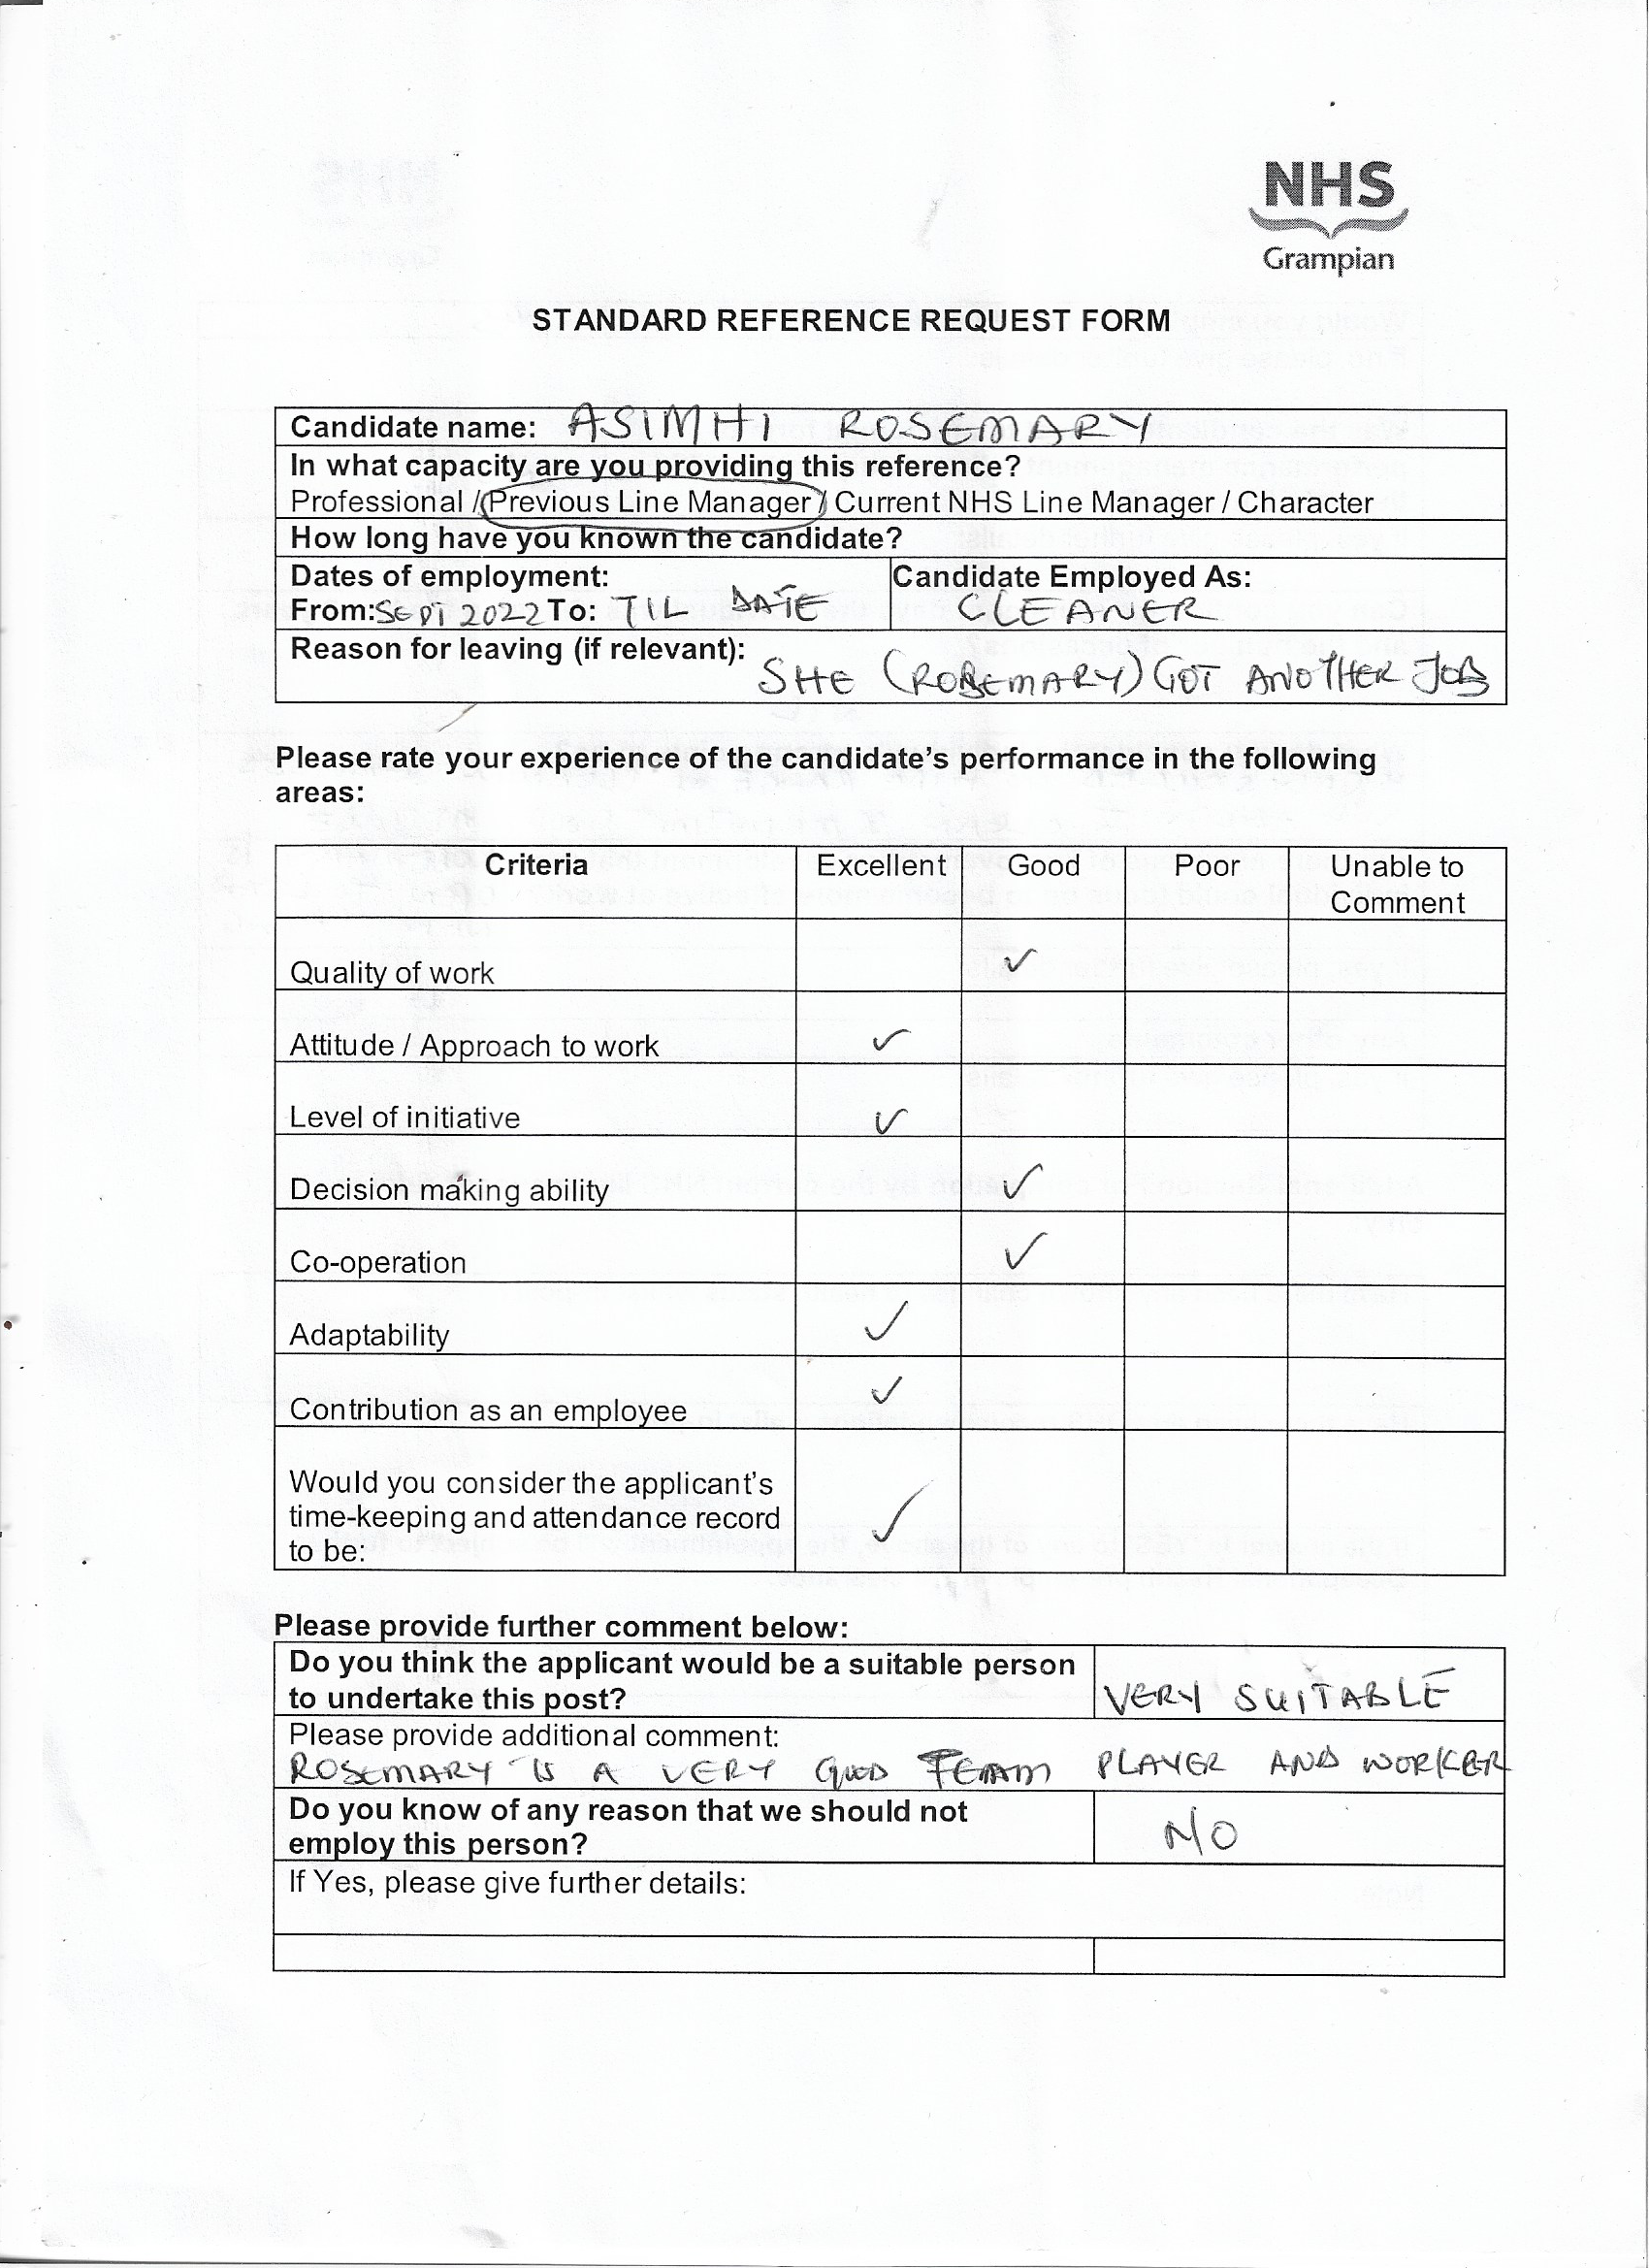 NHS
Grampian
STANDARD REFERENCE REQUEST FORM
Candidate name: ASIMHI ROSEMARY
In what capacity are you providing this reference?
Professional / Previous Line Manager / Current NHS Line Manager / Character
How long have you known the candidate?
Dates of employment: Candidate Employed As:
From: SEPT 2022 To: TIL DATE CLEANER
Reason for leaving (if relevant):
SHE (ROSEMARY) GOT ANOTHER JOB
Please rate your experience of the candidate's performance in the following
areas:
Criteria Excellent Good Poor Unable to
Comment
Quality of work ✓
Attitude / Approach to work ✓
Level of initiative ✓
Decision making ability ✓
Co-operation ✓
Adaptability ✓
Contribution as an employee ✓
Would you consider the applicant's
time-keeping and attendance record ✓
to be:
Please provide further comment below:
Do you think the applicant would be a suitable person
to undertake this post? VERY SUITABLE
Please provide additional comment:
ROSEMARY IS A VERY GOOD TEAM PLAYER AND WORKER
Do you know of any reason that we should not
employ this person? NO
If Yes, please give further details: